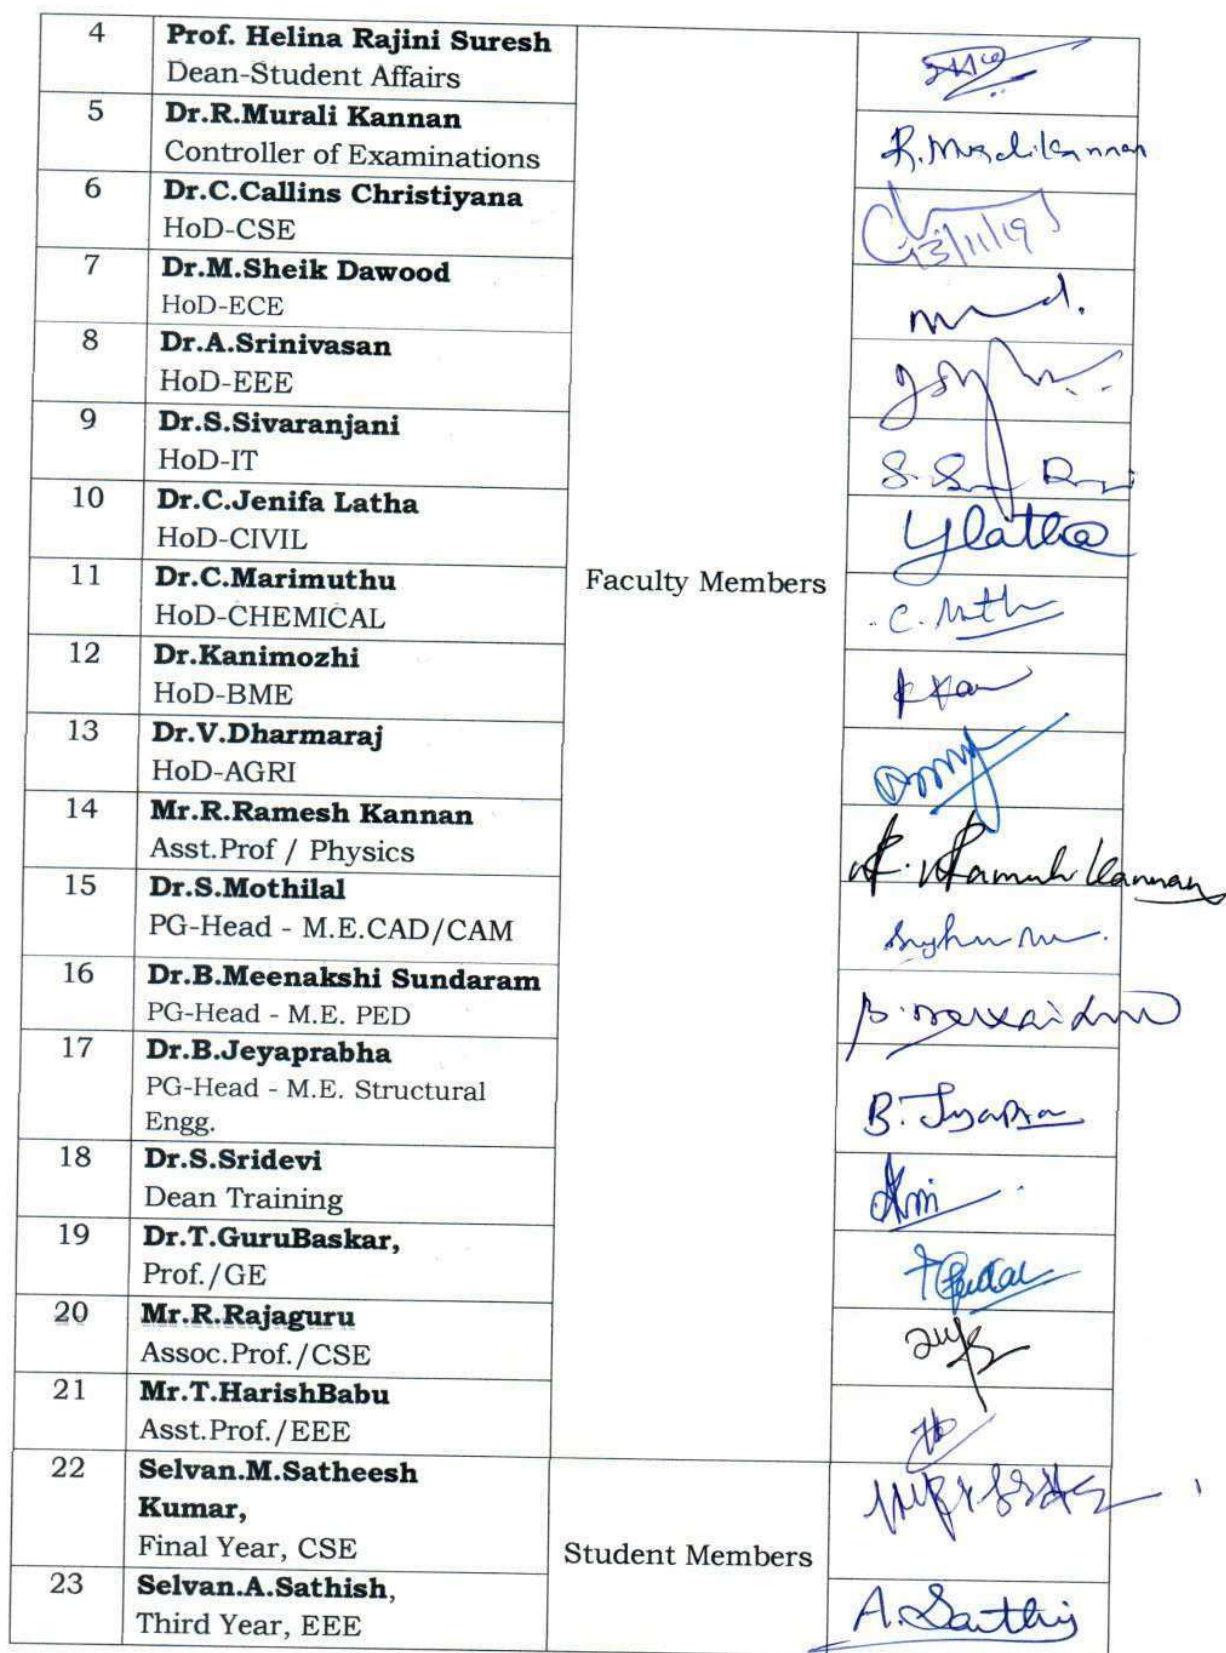 4 Prof. Helina Rajini Suresh
Dean-Student Affairs
5 Dr.R.Murali Kannan
Controller of Examinations
R.Muralikannan
6 Dr.C.Callins Christiyana
HoD-CSE
13/11/19
7 Dr.M.Sheik Dawood
HoD-ECE
8 Dr.A.Srinivasan
HoD-EEE
9 Dr.S.Sivaranjani
HoD-IT
10 Dr.C.Jenifa Latha
HoD-CIVIL
11 Dr.C.Marimuthu
Faculty Members
HoD-CHEMICAL
12 Dr.Kanimozhi
HoD-BME
13 Dr.V.Dharmaraj
HoD-AGRI
14 Mr.R.Ramesh Kannan
Asst.Prof / Physics
R. Ramesh Kannan
15 Dr.S.Mothilal
PG-Head - M.E.CAD/CAM
16 Dr.B.Meenakshi Sundaram
PG-Head - M.E. PED
17 Dr.B.Jeyaprabha
PG-Head - M.E. Structural
Engg.
18 Dr.S.Sridevi
Dean Training
19 Dr.T.GuruBaskar,
Prof./GE
20 Mr.R.Rajaguru
Assoc.Prof./CSE
21 Mr.T.HarishBabu
Asst.Prof./EEE
22 Selvan.M.Satheesh
Kumar,
Final Year, CSE
Student Members
23 Selvan.A.Sathish,
Third Year, EEE